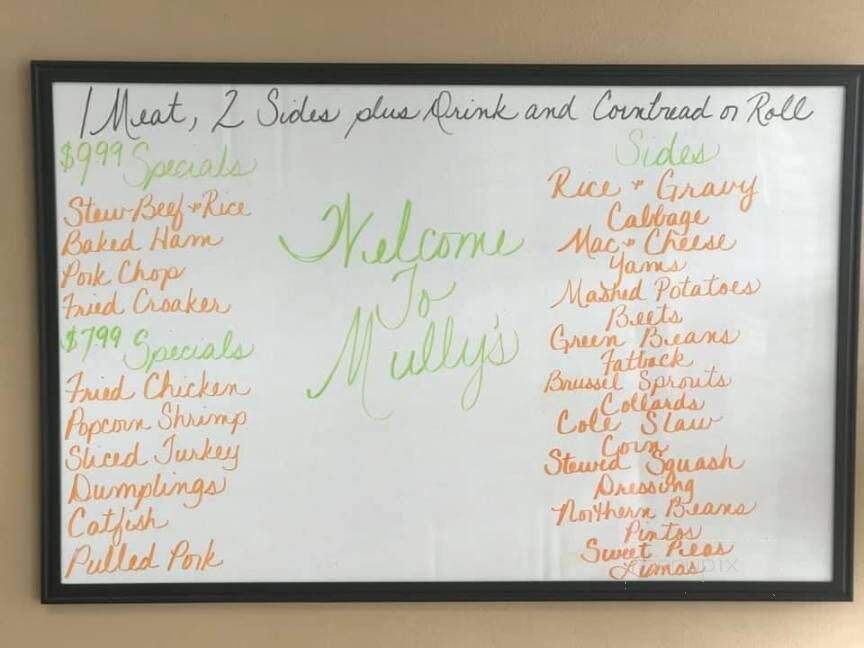 1 Meat, 2 Sides plus Drink and Cornbread or Roll
$9.99 Specials
Stew Beef & Rice
Baked Ham
Pork Chop
Fried Croaker
$7.99 Specials
Fried Chicken
Popcorn Shrimp
Sliced Turkey
Dumplings
Catfish
Pulled Pork
Welcome
To
Mully's
Sides
Rice & Gravy
Cabbage
Mac & Cheese
Yams
Mashed Potatoes
Beets
Green Beans
Fatback
Brussel Sprouts
Collards
Cole Slaw
Corn
Stewed Squash
Dressing
Northern Beans
Pintos
Sweet Peas
Limas